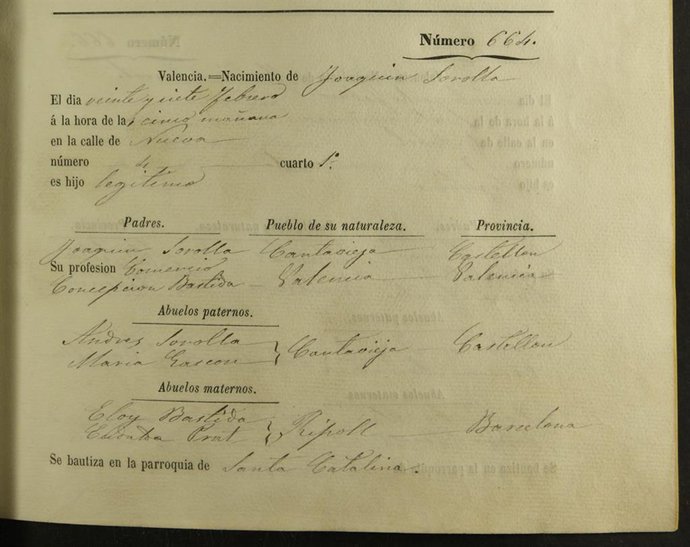 Número 664.
Valencia.=Nacimiento de Joaquin Sorolla
El dia veinte y siete febrero
á la hora de la cinco mañana
en la calle de Nueva
número 4 cuarto 1º.
es hijo legitimo
Padres. Pueblo de su naturaleza. Provincia.
Joaquin Sorolla Cantavieja Castellon
Su profesion Comercio
Concepcion Bastida Valencia Valencia
Abuelos paternos.
Andres Sorolla
Maria Gascon } Cantavieja Castellon
Abuelos maternos.
Eloy Bastida
Prat } Ripoll Barcelona
Se bautiza en la parroquia de Santa Catalina.